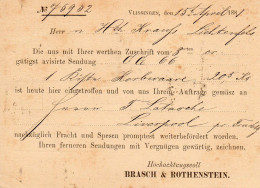 No. 75902 Vlissingen, den 15 April 1881
Herr Hch. Krauss Lichtenfels
Die uns mit Ihrer werthen Zuschrift vom 8
gütigst avisirte Sendung
1 Kiste Korbwaare 205 Ko
ist heute hier eingetroffen und von uns Ihrem Auftrage gemäss an
Herrn
Liverpool
unbezüglich Fracht und Spesen promptest weiterbefördert worden.
Ihren ferneren Sendungen mit Vergnügen gewärtig, zeichnen
Hochachtungsvoll
BRASCH & ROTHENSTEIN.